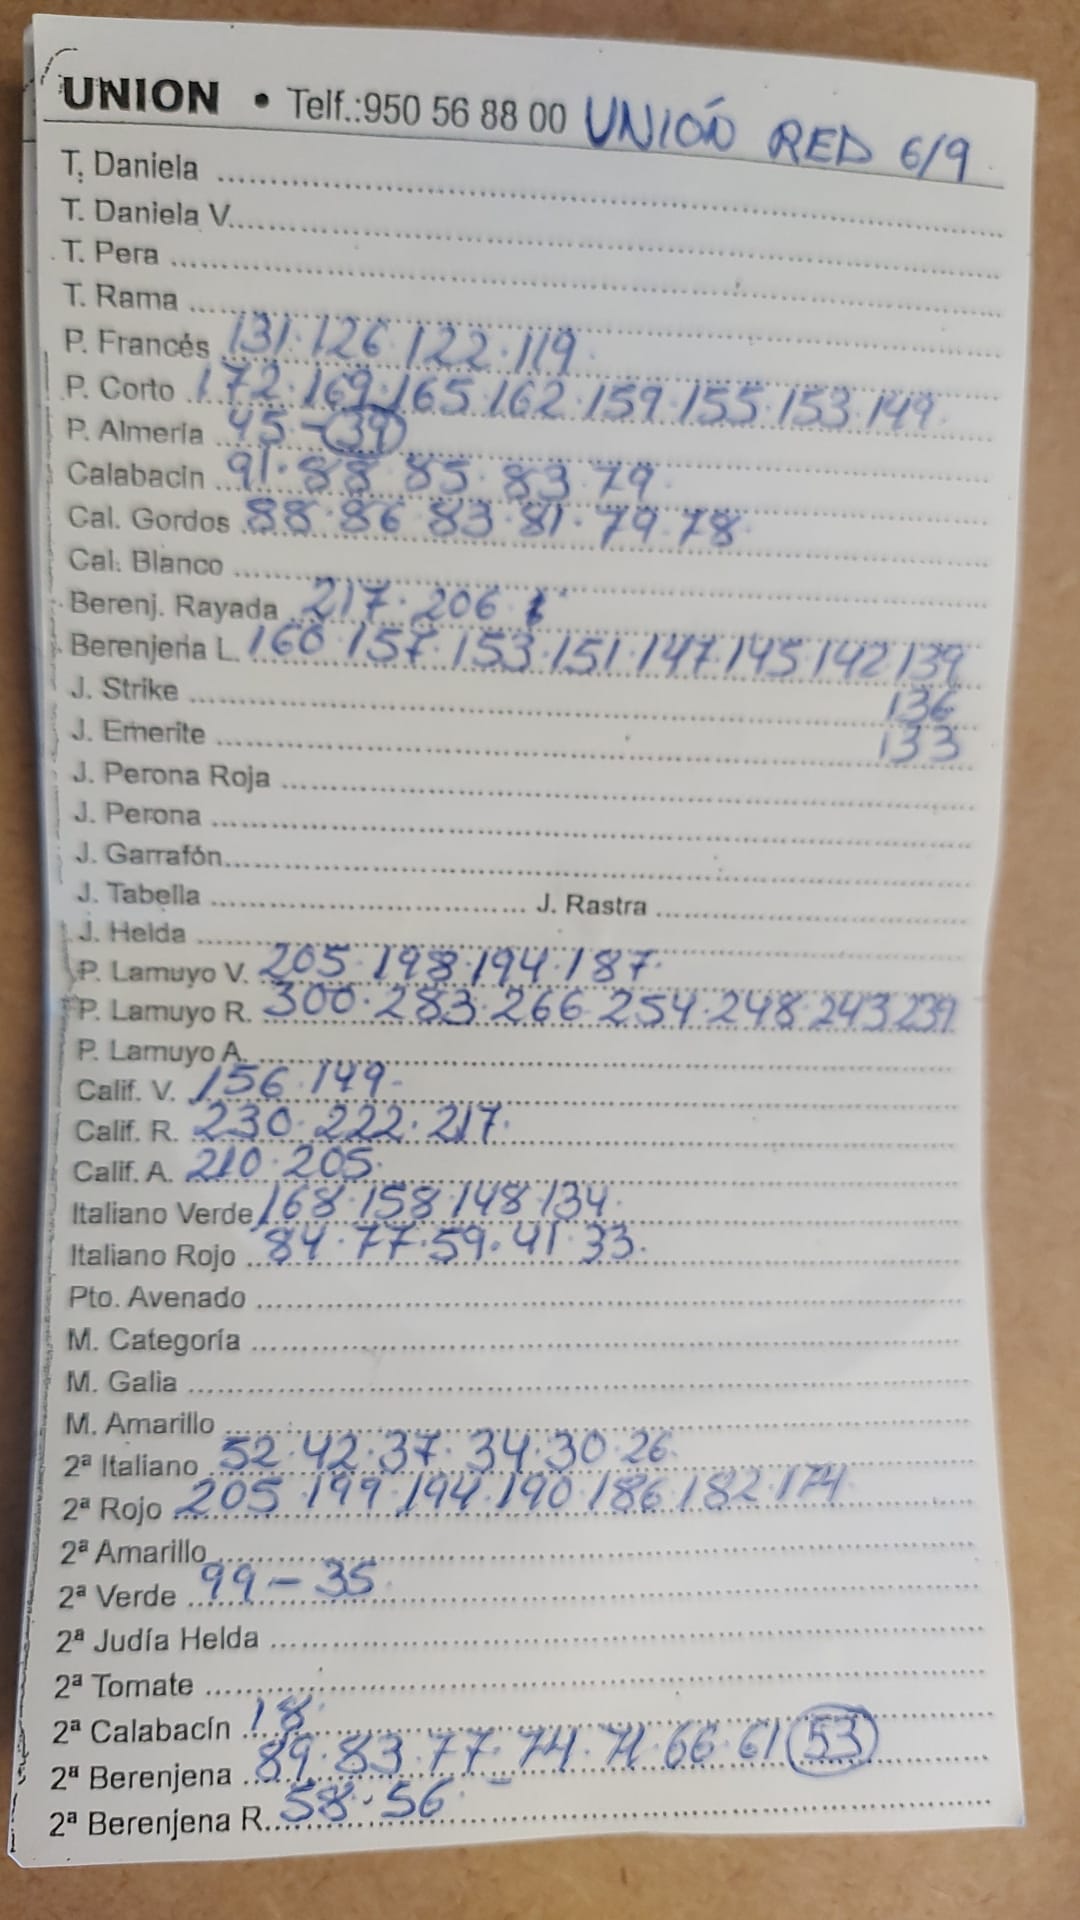 UNION • Telf.:950 56 88 00 UNIÓN RED 6/9
T. Daniela
T. Daniela V.
T. Pera
T. Rama
P. Francés 131·126 122·119
P. Corto 172·169·165·162·159·155·153·149
P. Almería 45-39
Calabacin 91·88 85·83·79
Cal. Gordos 88·86 83·81·79·78
Cal. Blanco
Berenj. Rayada 217·206
Berenjena L. 160·157·153·151·147·145·142·139
136
J. Strike
133
J. Emerite
J. Perona Roja
J. Perona
J. Garrafón
J. Tabella J. Rastra
J. Helda
P. Lamuyo V. 205·198·194·187
P. Lamuyo R. 300·283·266·254·248·243 239
P. Lamuyo A.
Calif. V. 156·149
Calif. R. 230·222·217
Calif. A. 210·205
Italiano Verde 168·158·148·134
Italiano Rojo 84·77·59·41·33
Pto. Avenado
M. Categoría
M. Galia
M. Amarillo
2ª Italiano 52·42·37·34·30·26
2ª Rojo 205·199·194·190·186·182·174
2ª Amarillo
2ª Verde 99-35
2ª Judía Helda
2ª Tomate
2ª Calabacín 18
2ª Berenjena 89·83·77·74·71·66·61 53
2ª Berenjena R. 58·56